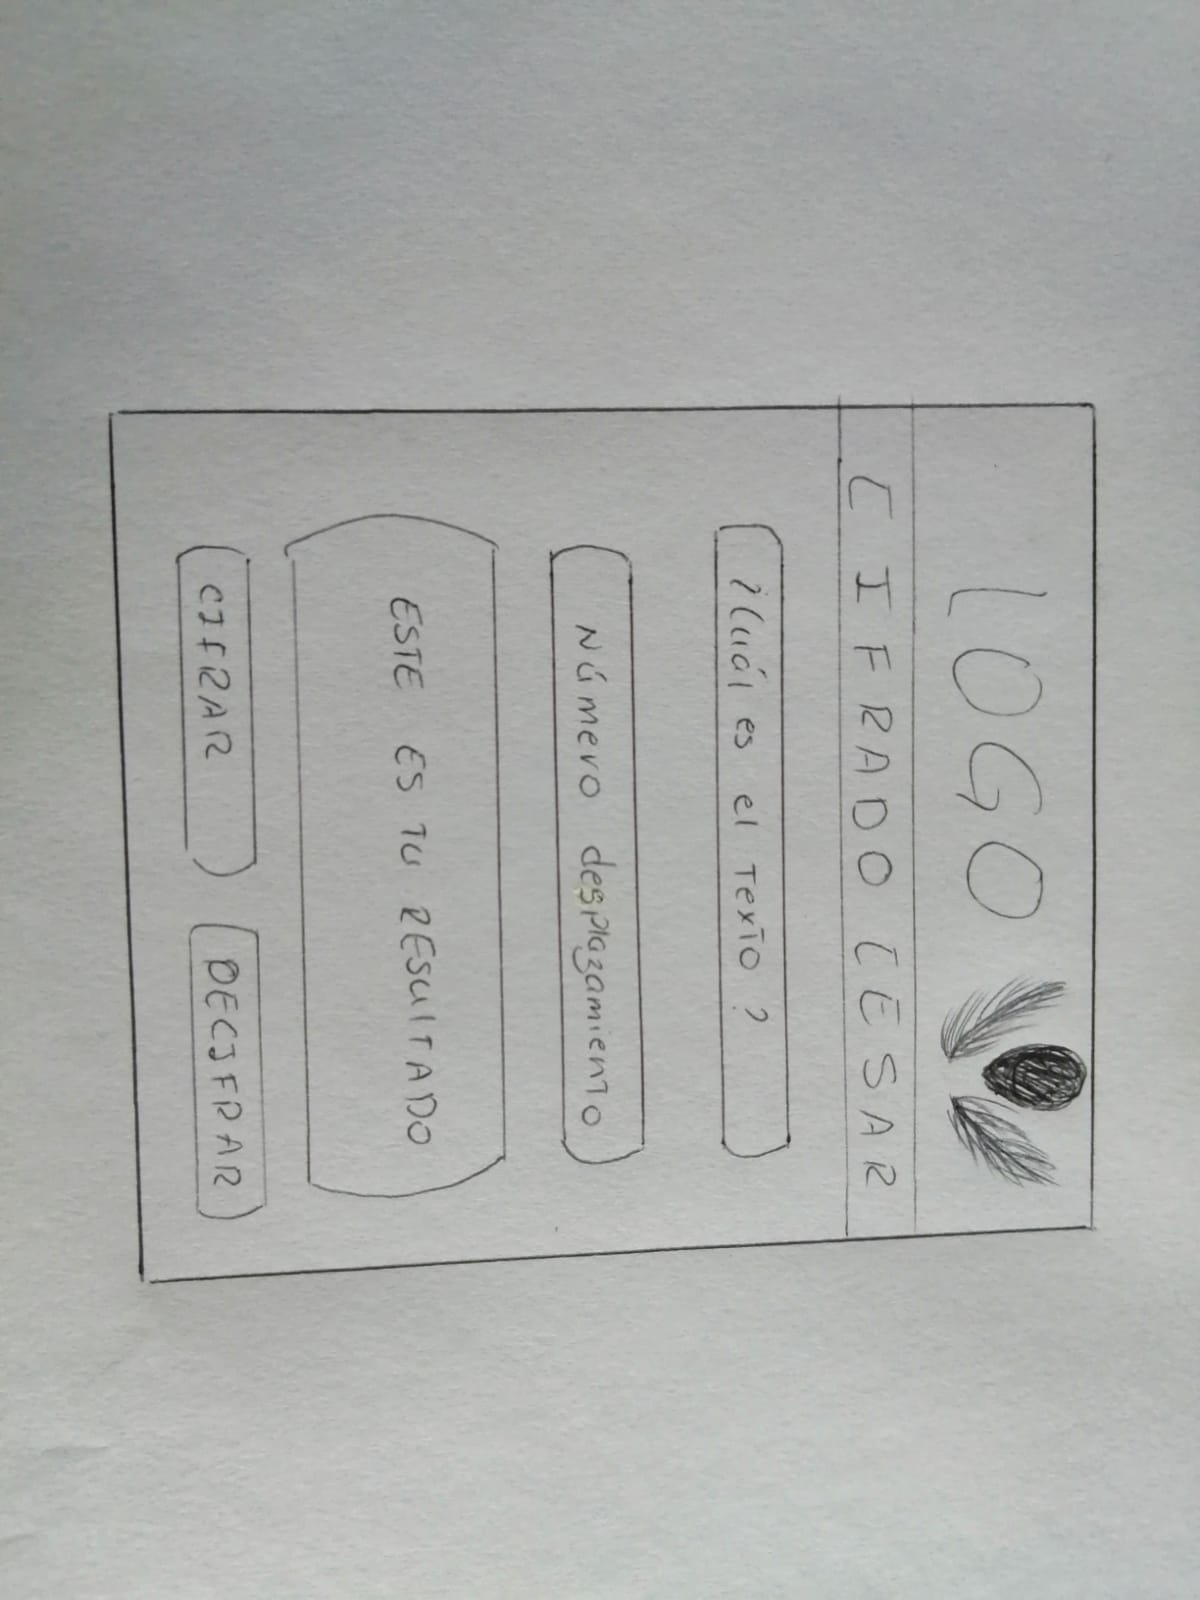 LOGO
CIFRADO CESAR
¿Cuál es el Texto?
Número desplazamiento
ESTE ES TU RESULTADO
CIFRAR DECIFRAR